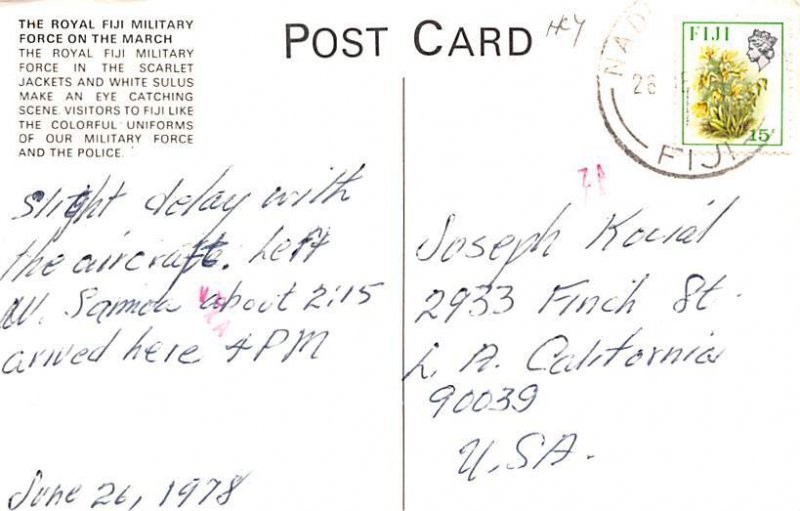 THE ROYAL FIJI MILITARY
FORCE ON THE MARCH
THE ROYAL FIJI MILITARY
FORCE IN THE SCARLET
JACKETS AND WHITE SULUS
MAKE AN EYE CATCHING
SCENE. VISITORS TO FIJI LIKE
THE COLORFUL UNIFORMS
OF OUR MILITARY FORCE
AND THE POLICE.
POST CARD
FIJI
15c
26
FIJI
slight delay with
the aircraft. Left
W. Samoa about 2:15
arived here 4 PM
June 26, 1978
Joseph Kovial
2933 Finch St.
L. A. California
90039
U.SA.